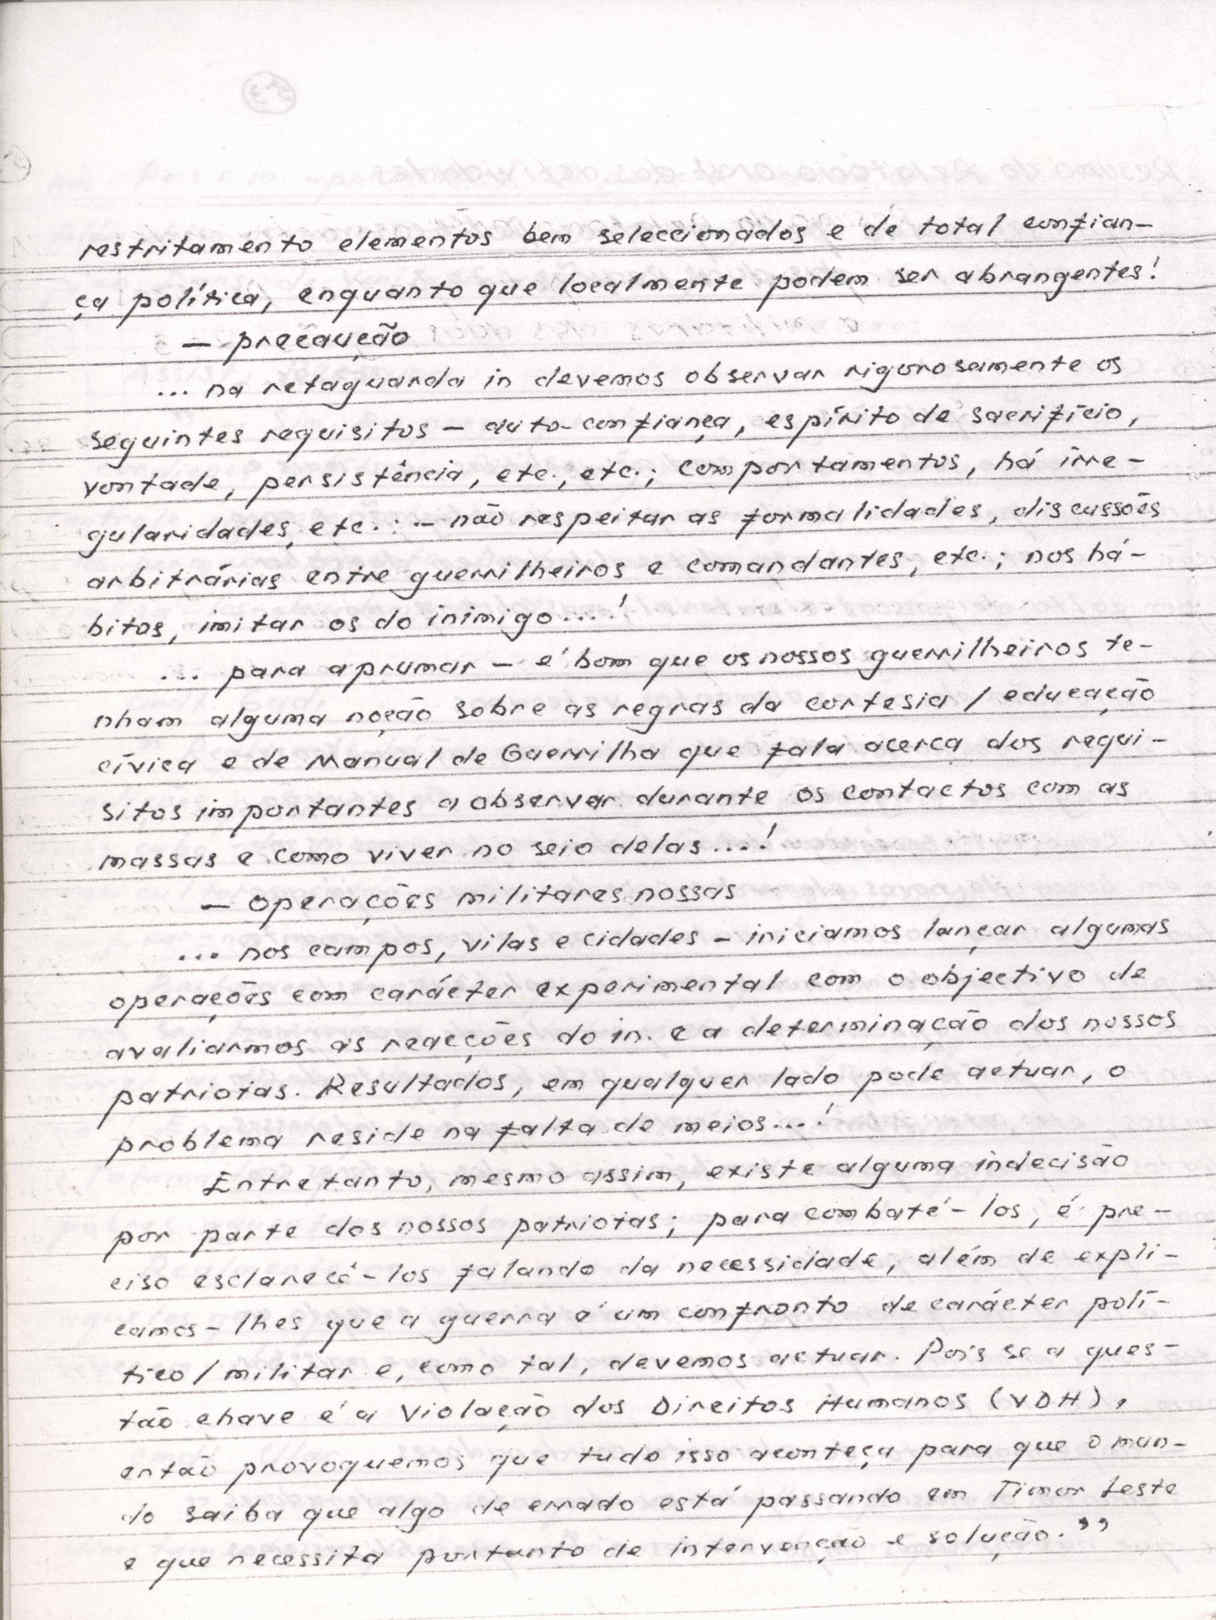 restritamento elementos bem seleccionados e de total confian-
ça política, enquanto que localmente podem ser abrangentes!
— precaução
... na retaguarda in devemos observar rigorosamente os
seguintes requisitos — auto-confiança, espírito de sacrifício,
vontade, persistência, etc., etc.; comportamentos, há irre-
gularidades, etc. : — não respeitar as formalidades, discussões
arbitrárias entre guerrilheiros e comandantes, etc.; nos há-
bitos, imitar os do inimigo....!
... para aprumar — é bom que os nossos guerrilheiros te-
nham alguma noção sobre as regras da cortesia / educação
cívica e de Manual de Guerrilha que fala acerca dos requi-
sitos importantes a observar durante os contactos com as
massas e como viver no seio delas....!
— operações militares nossas
... nos campos, vilas e cidades — iniciamos lançar algumas
operações com carácter experimental com o objectivo de
avaliarmos as reacções do in. e a determinação dos nossos
patriotas. Resultados, em qualquer lado pode actuar, o
problema reside na falta de meios....!
Entretanto, mesmo assim, existe alguma indecisão
por parte dos nossos patriotas; para combatê-los, é pre-
ciso esclarecê-los falando da necessidade, além de expli-
camos-lhes que a guerra é um confronto de carácter polí-
tico / militar e, como tal, devemos actuar. Pois se a ques-
tão chave é a Violação dos Direitos Humanos (VDH),
então provoquemos que tudo isso aconteça para que o mun-
do saiba que algo de errado está passando em Timor Leste
e que necessita portanto de intervenção e solução."